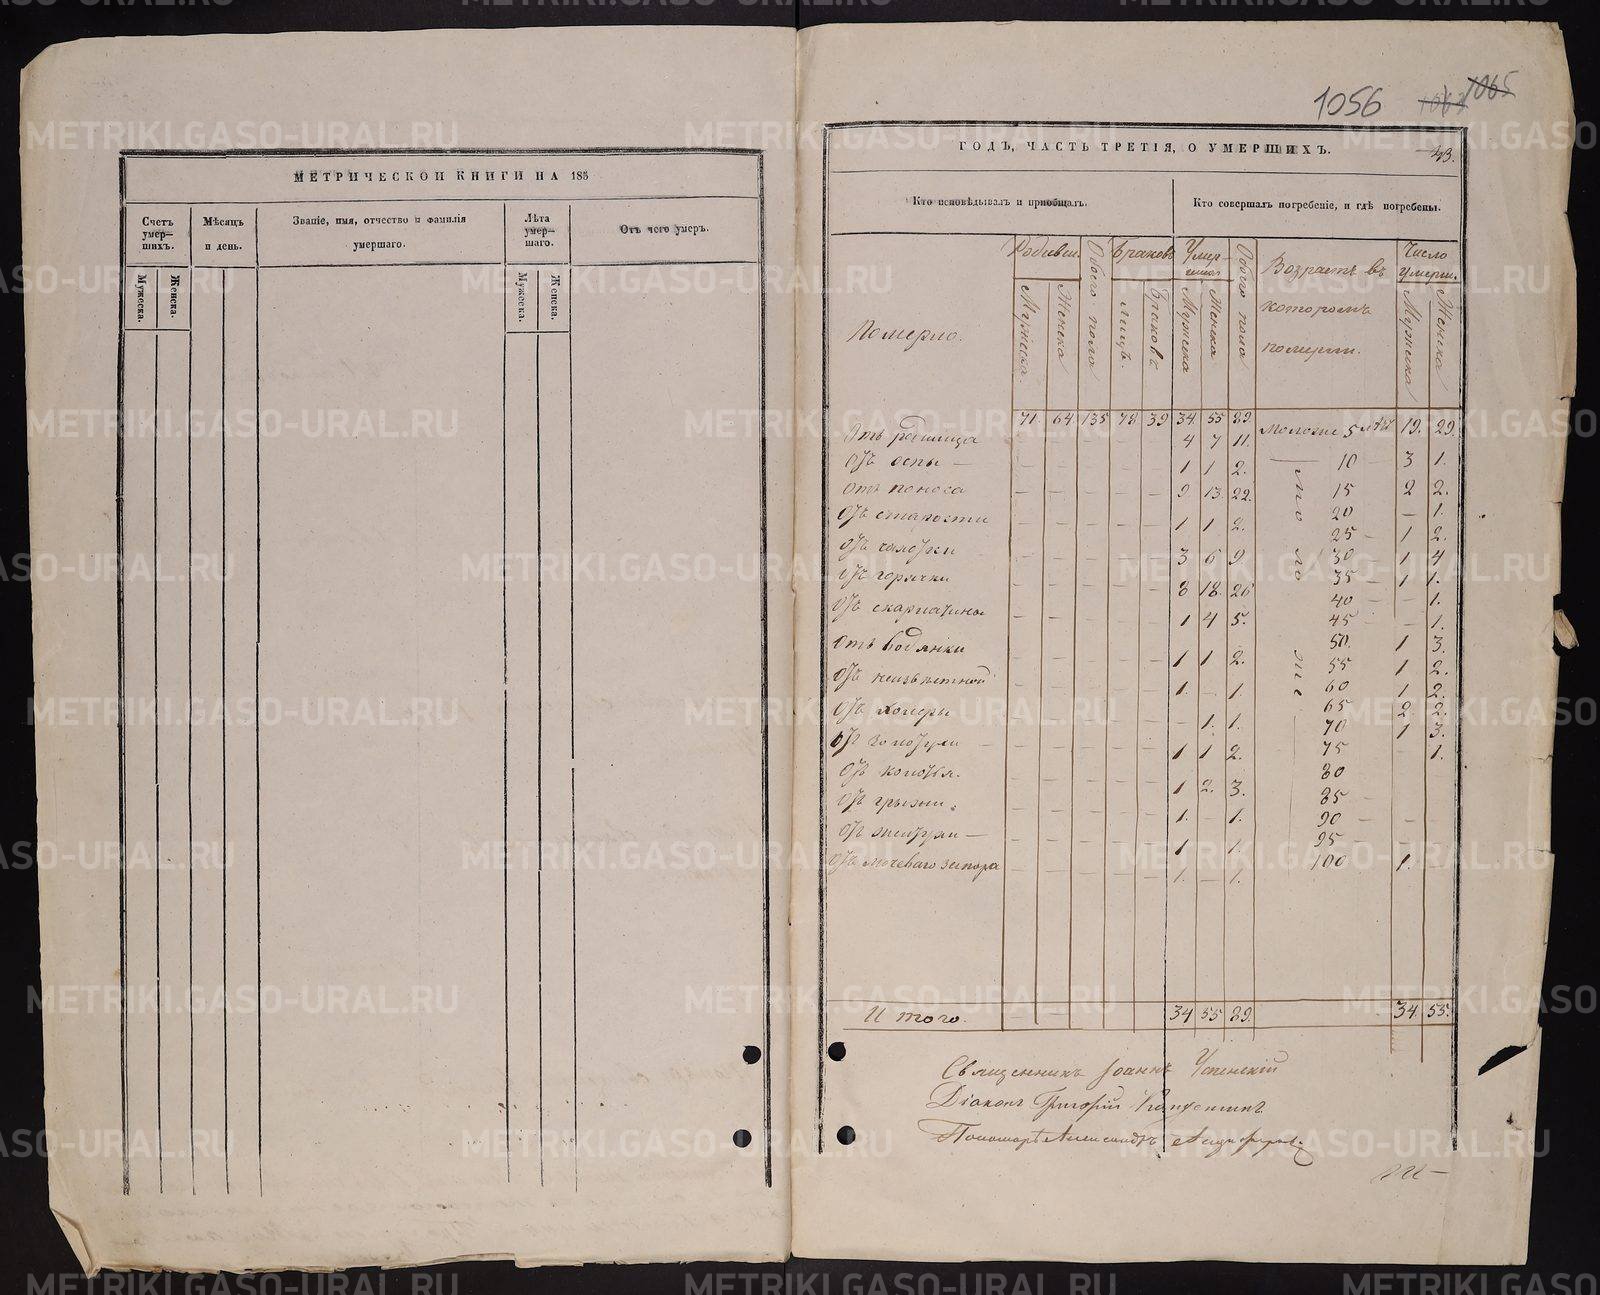 МЕТРИЧЕСКОЙ КНИГИ НА 185
Счетъ умер—шихъ.
Мѣсяцъ и день.
Званіе, имя, отчество и фамилія умершаго.
Лѣта умер—шаго.
Отъ чего умеръ.
Мужеска.
Женска.
Мужеска.
Женска.
1056
1065
ГОДЪ, ЧАСТЬ ТРЕТІЯ, О УМЕРШИХЪ.
Кто исповѣдывалъ и пріобщалъ.
Кто совершалъ погребеніе, и гдѣ погребены.
Померло.
Мужеска
Женска
Обоего пола
Браковъ
лицъ.
Браковъ
Умерших
Мужеска
Женска
Обоего пола
Возрастъ въ которомъ померли.
Число умерш.
Мужеска
Женска
71. 64. 135 78 39 34. 55 89.
Отъ родимца 4 7 11. моложе 5 лѣт 19. 29.
Отъ оспы — 1 1 2. 10 3 1.
Отъ поноса — — — — — 9 13. 22. 15 2 2.
Отъ старости 1 1 2. 20 — 1.
25 — 1 2.
Отъ чахотки 3 6 9. 30 1 4
Отъ горячки 8 18. 26 35 — 1 1.
40 — — 1.
Отъ скарлатины 1 4 5. 45 — — 1.
Отъ водянки 1 1 2. 50. 1 3.
55 1 2.
Отъ неизвѣстной 1. — 1. 60 1 2.
65 2 2.
Отъ холеры — 1. 1. 70 1 3.
Отъ золотухи — 1 1 2. 75 1.
80
Отъ колотья. 1 2. 3. 85 —
Отъ грыжи. 1. — 1. 90 — — —
95
Отъ — 1 1. 100 1.
Отъ мочеваго запора 1. — 1.
Итого. 34 55 89. 34. 55.
Священникъ Іоаннъ Успенскій
Діаконъ Григорій
Пономарь Александръ
METRIKI.GASO-URAL.RU